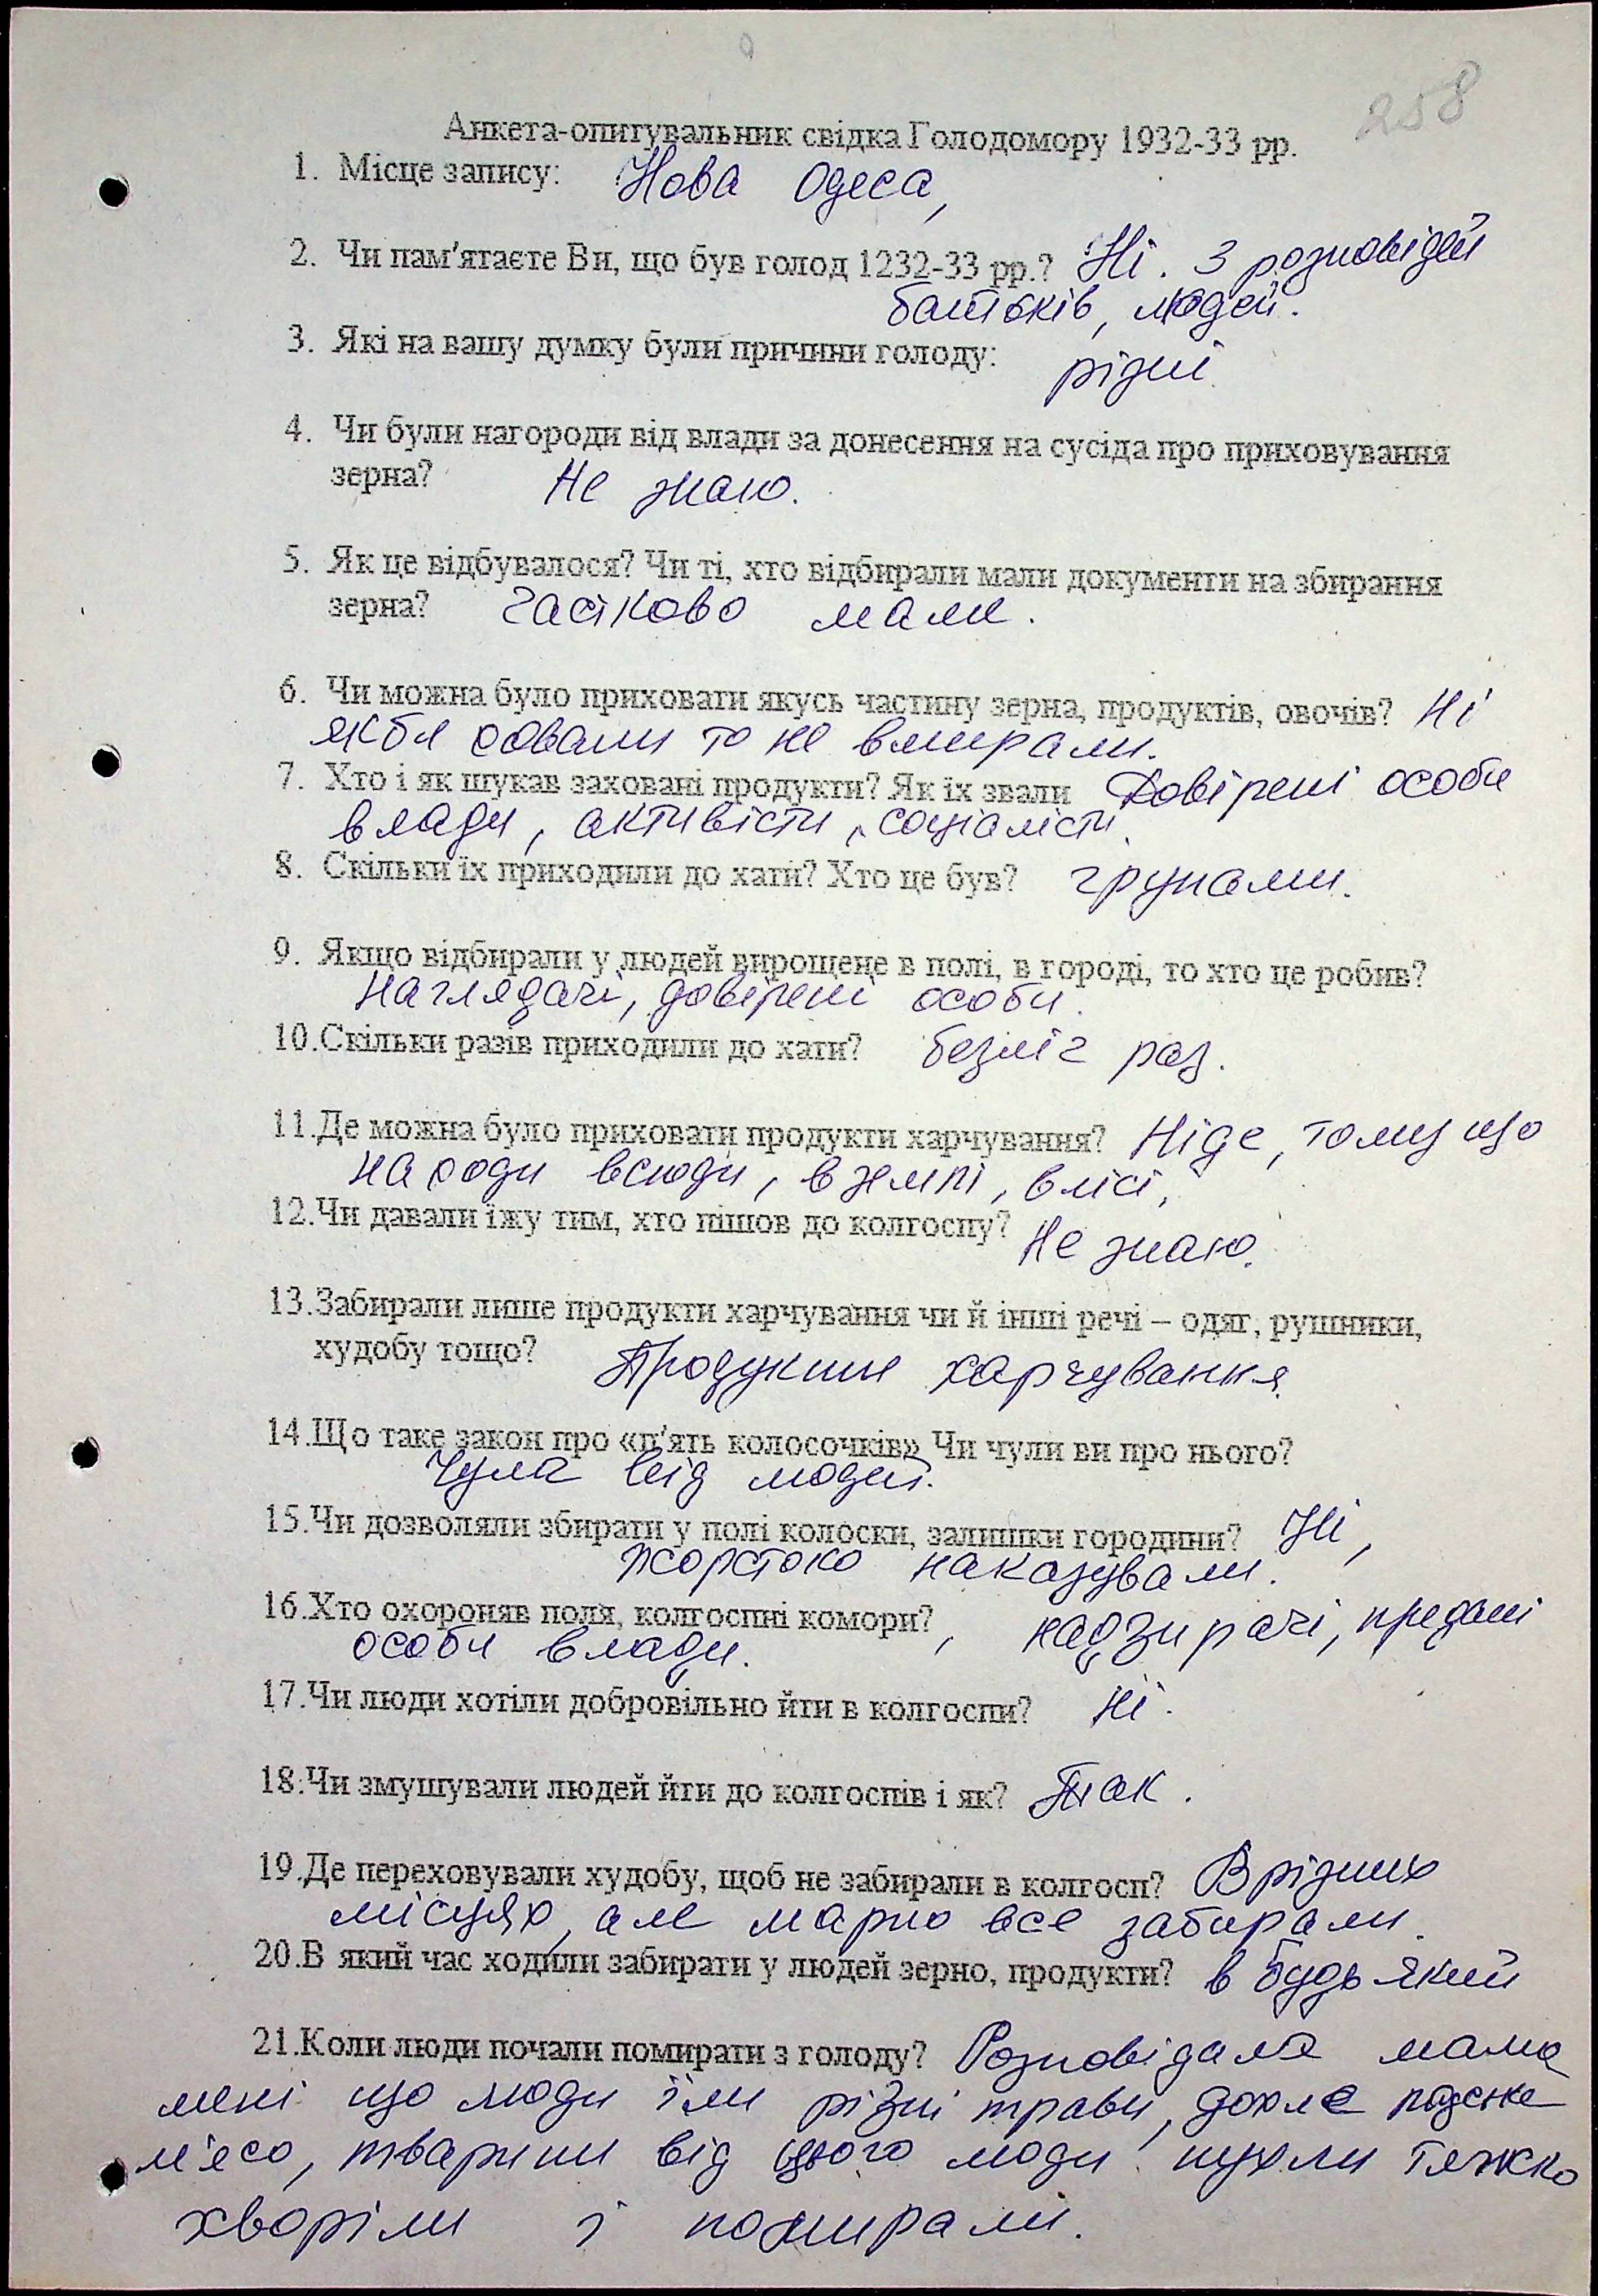 258
Анкета-опитувальник свідка Голодомору 1932-33 рр.
1. Місце запису: Нова Одеса,
2. Чи пам'ятаєте Ви, що був голод 1232-33 рр.? Ні. З розповідей
батьків, людей.
3. Які на вашу думку були причини голоду: різні.
4. Чи були нагороди від влади за донесення на сусіда про приховування
зерна? Не знаю.
5. Як це відбувалося? Чи ті, хто відбирали мали документи на збирання
зерна? частково мали.
6. Чи можна було приховати якусь частину зерна, продуктів, овочів? Ні
якби ховали то не вмирали.
7. Хто і як шукав заховані продукти? Як їх звали Довірені особи
влади, активісти, соціалісти.
8. Скільки їх приходили до хати? Хто це був? групами.
9. Якщо відбирали у людей вирощене в полі, в городі, то хто це робив?
Наглядачі, довірені особи.
10.Скільки разів приходили до хати? безліч раз.
11.Де можна було приховати продукти харчування? Ніде, тому що
находи всюди, в землі, в лісі,
12.Чи давали їжу тим, хто пішов до колгоспу? Не знаю.
13.Забирали лише продукти харчування чи й інші речі – одяг, рушники,
худобу тощо? Продукти харчування.
14.Що таке закон про «п'ять колосочків» Чи чули ви про нього?
Чула від людей.
15.Чи дозволяли збирати у полі колоски, залишки городини? Ні,
жорстоко наказували.
16.Хто охороняв поля, колгоспні комори?, надзирачі, предані
особи влади.
17.Чи люди хотіли добровільно йти в колгоспи? Ні.
18.Чи змушували людей йти до колгоспів і як? Так.
19.Де переховували худобу, щоб не забирали в колгосп? В різних
місцях, але марно все забирали.
20.В який час ходили забирати у людей зерно, продукти? в будь який
21.Коли люди почали помирати з голоду? Розповідала мама
мені що люди їли різні трави, дохле
м'ясо, тварини від цього люди пухли тяжко
хворіли і помирали.